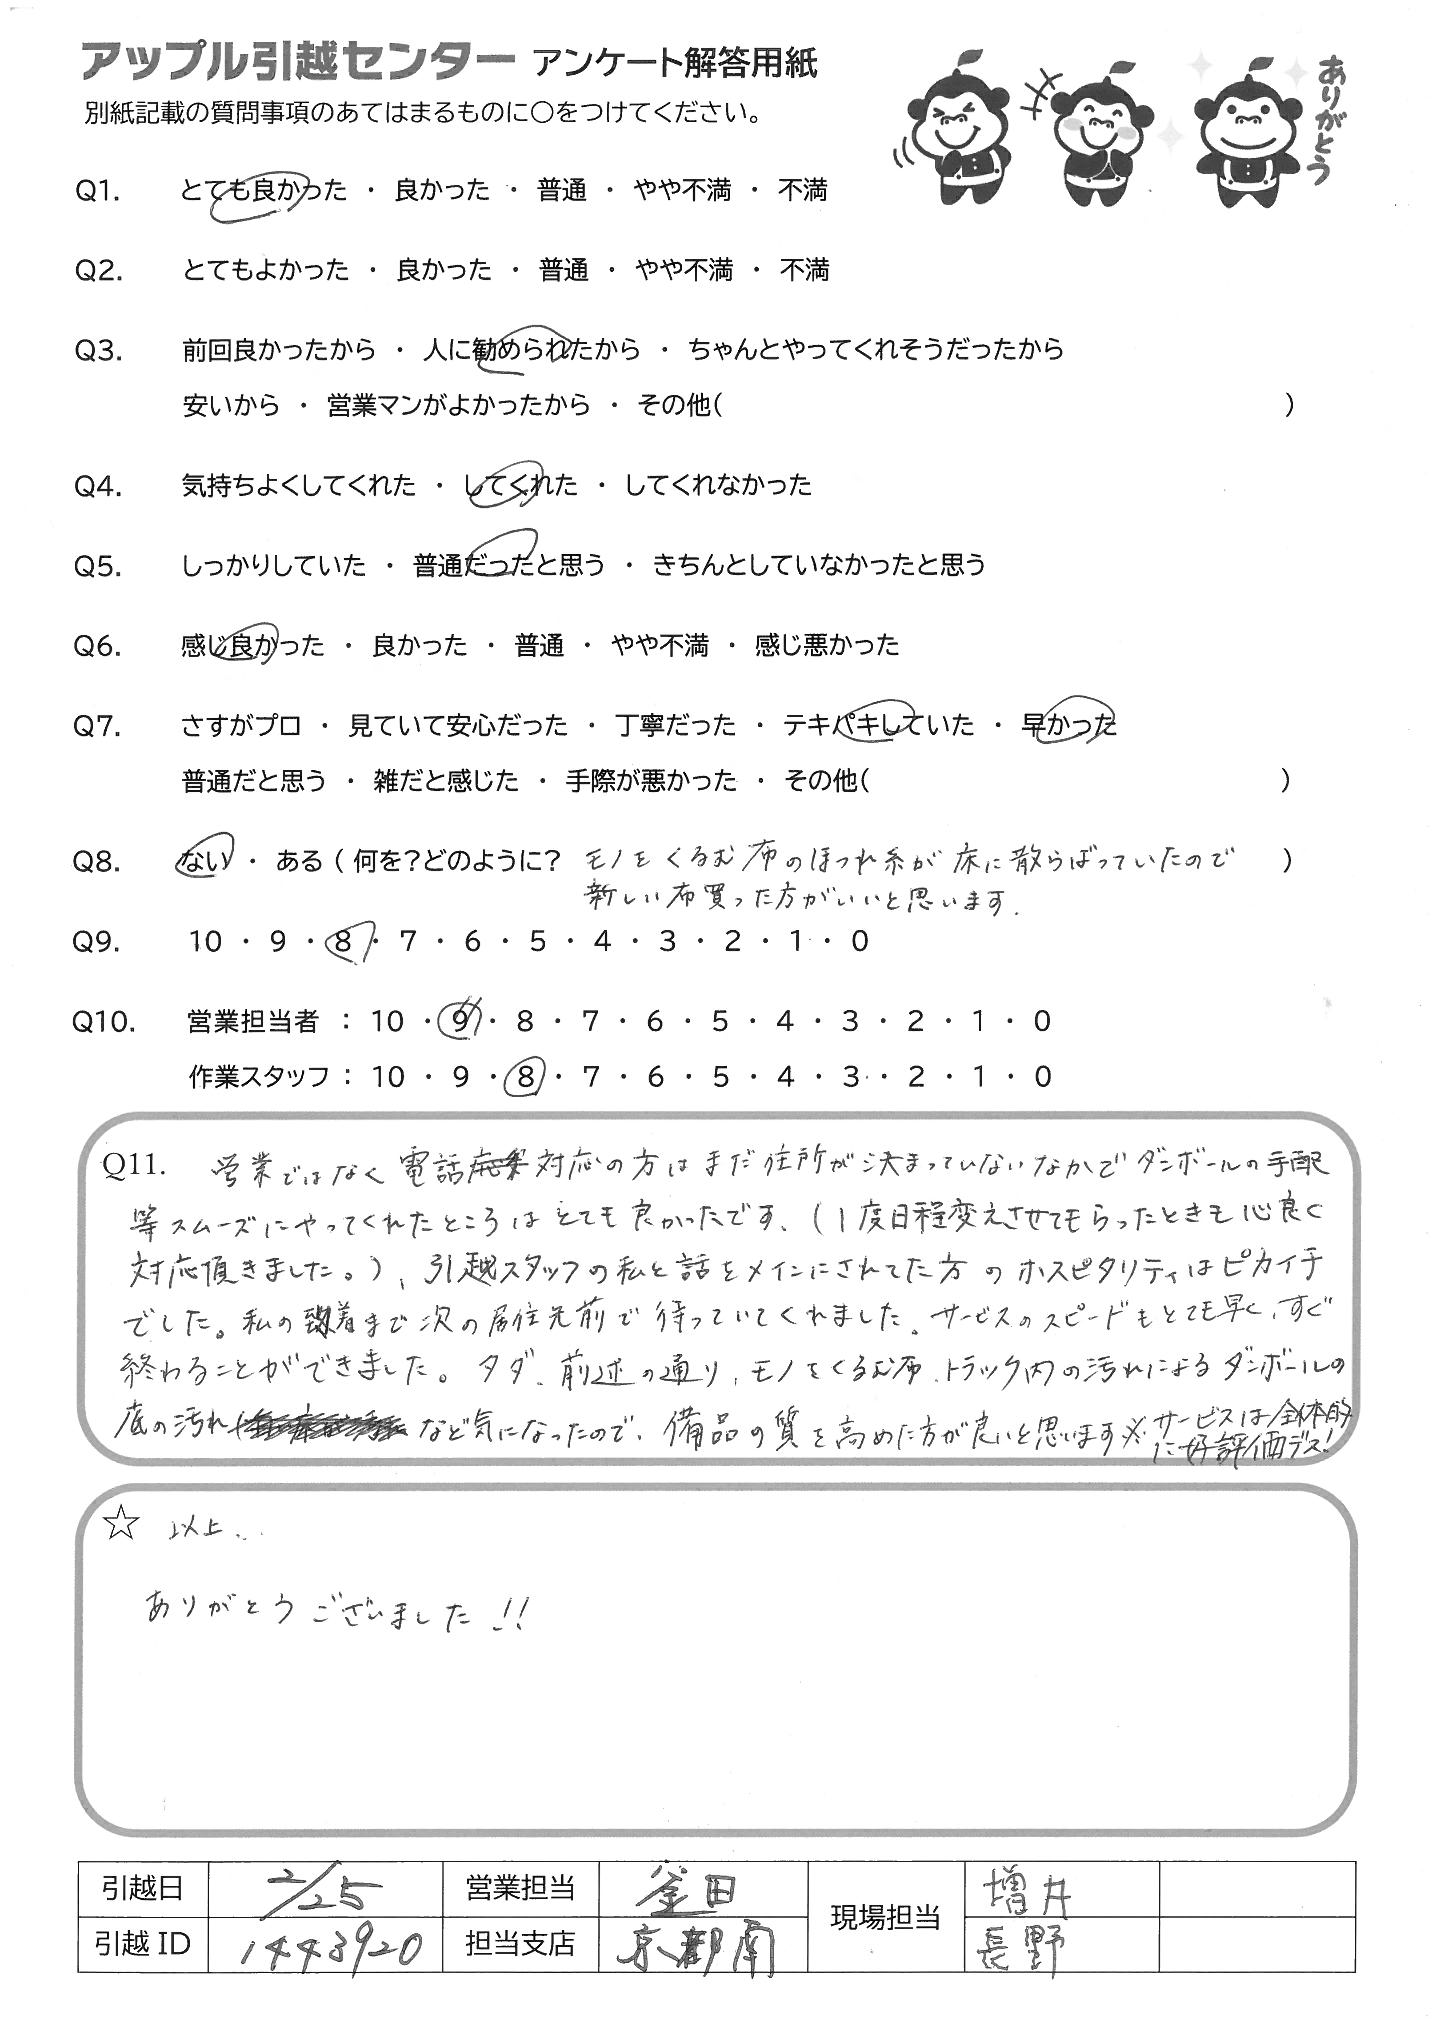 アップル引越センター アンケート解答用紙
別紙記載の質問事項のあてはまるものに〇をつけてください。
ありがとう
Q1. とても良かった ・ 良かった ・ 普通 ・ やや不満 ・ 不満
Q2. とてもよかった ・ 良かった ・ 普通 ・ やや不満 ・ 不満
Q3. 前回良かったから ・ 人に勧められたから ・ ちゃんとやってくれそうだったから
安いから ・ 営業マンがよかったから ・ その他( )
Q4. 気持ちよくしてくれた ・ してくれた ・ してくれなかった
Q5. しっかりしていた ・ 普通だったと思う ・ きちんとしていなかったと思う
Q6. 感じ良かった ・ 良かった ・ 普通 ・ やや不満 ・ 感じ悪かった
Q7. さすがプロ ・ 見ていて安心だった ・ 丁寧だった ・ テキパキしていた ・ 早かった
普通だと思う ・ 雑だと感じた ・ 手際が悪かった ・ その他( )
Q8. ない ・ ある ( 何を?どのように? モノをくるむ布のほつれ糸が床に散らばっていたので )
新しい布買った方がいいと思います.
Q9. 10 ・ 9 ・ 8 ・ 7 ・ 6 ・ 5 ・ 4 ・ 3 ・ 2 ・ 1 ・ 0
Q10. 営業担当者 : 10 ・ 9 ・ 8 ・ 7 ・ 6 ・ 5 ・ 4 ・ 3 ・ 2 ・ 1 ・ 0
作業スタッフ : 10 ・ 9 ・ 8 ・ 7 ・ 6 ・ 5 ・ 4 ・ 3 ・ 2 ・ 1 ・ 0
Q11. 営業ではなく電話対応の方はまだ住所が決まっていないなかでダンボールの手配
等スムーズにやってくれたところはとても良かったです、(1度日程変えさせてもらったときも心良く
対応頂きました。)、引越スタッフの私と話をメインにされてた方のホスピタリティはピカイチ
でした。私の到着まで次の居住先前で待っていてくれました。サービスのスピードもとても早く、すぐ
終わることができました。タダ、前述の通り、モノをくるむ布、トラック内の汚れによるダンボールの
底の汚れなど気になったので、備品の質を高めた方が良いと思います ※サービスは全体的
に好評価デス!
☆ 以上...
ありがとうございました!!
引越日 2/25 営業担当 釜田 現場担当 増井
引越ID 1443920 担当支店 京都南 長野